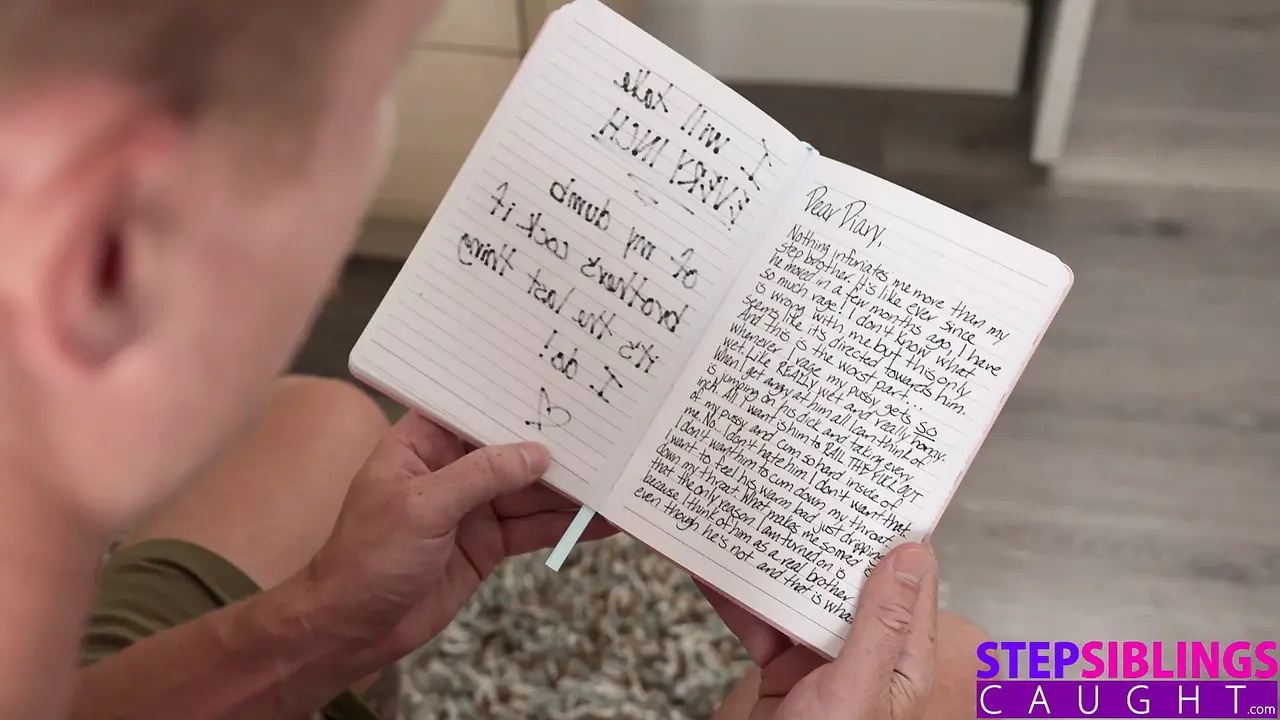 I will take
EVERY INCH
of my dumb
brothers cock if
it's the last thing
I do!
Dear Diary,
Nothing intimates me more than my
step brother. It's like ever since
he moved in a few months ago, I have
so much rage. I don't know what
is wrong with me but this only
seems like it's directed towards him.
And this is the worst part...
whenever I rage my pussy gets so
wet. Like REALLY wet and really horny.
When I get angry at him all I can think of
is jumping on his dick and taking every
inch. All I want is him to RAIL THE OUT
of my pussy and cum so hard inside of
me. No I don't hate him I don't want that
I don't want him to cum down my throat.
I want to feel his warm load just dripping
down my throat. What makes me so
that the only reason I am turned on is
because I think of him as a real brother
even though he's not and that is
STEPSIBLINGS
CAUGHT.com